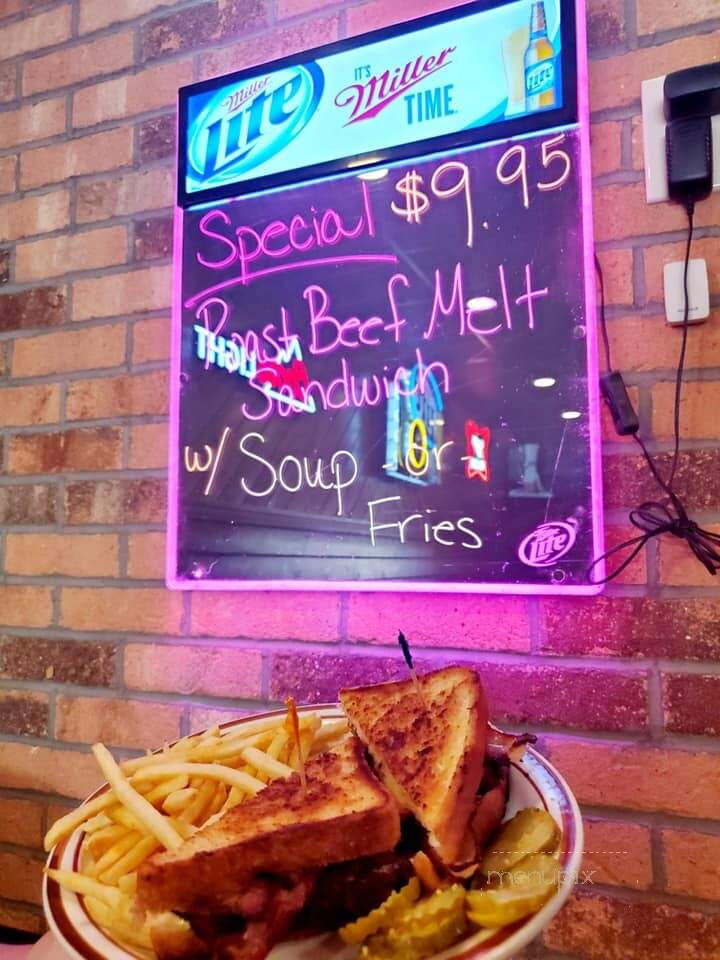 Miller Lite
IT'S Miller TIME
Lite
Special $9.95
Roast Beef Melt
Sandwich
w/ Soup -or-
Fries
Lite
menupix